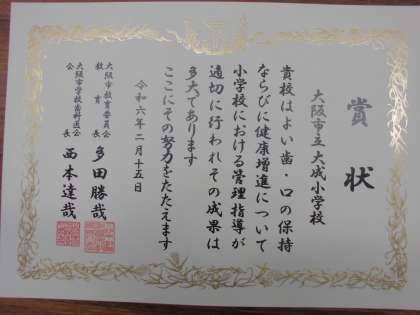 賞状
大阪市立大成小学校
貴校はよい歯・口の保持
ならびに健康増進について
小学校における管理指導が
適切に行われその成果は
多大であります
ここにその努力をたたえます
令和六年二月十五日
大阪市教育委員会
教育長 多田勝哉
大阪市学校歯科医会
会長 西本達哉